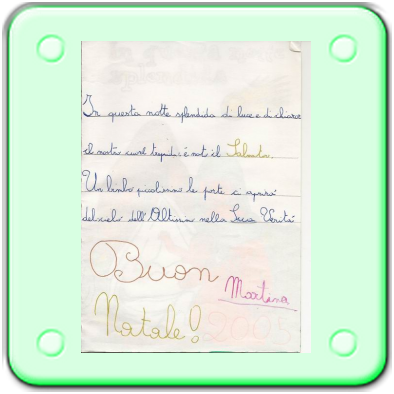 In questa notte splendida di luce e di chiaror
il nostro cuor trepida: è nato il Salvator.
Un bimbo piccolissimo le porte ci aprirà
del cielo dell'Altissimo nella Sua Verità
Buon
Martina
Natale! 2005